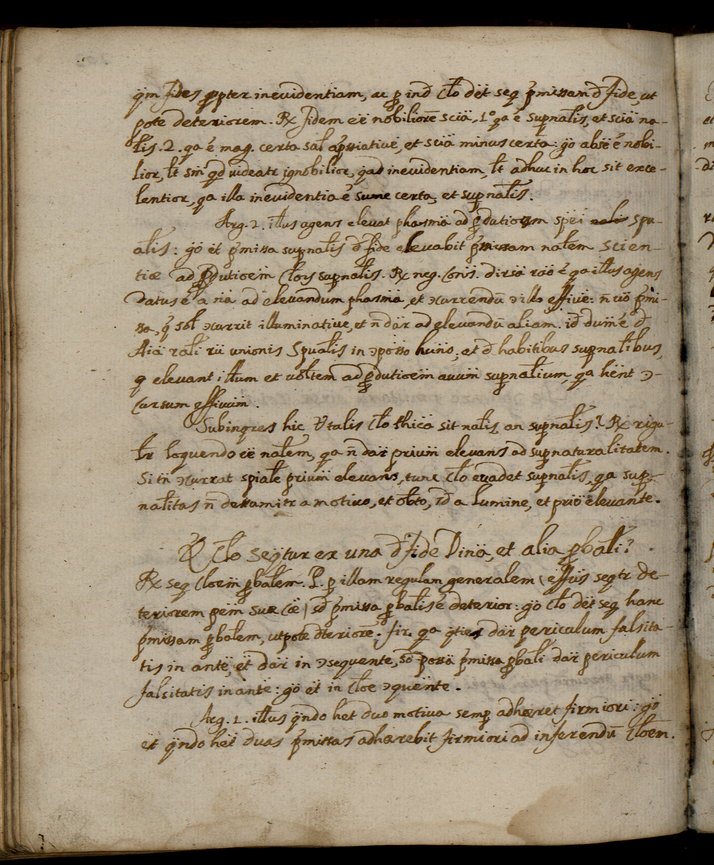 qm fides ppter ineuidentiam, ac p ind clo det seq pmissam d fide, ut
pote deteriorem. Rx fidem eē nobiliorē sciā, 1º qa ē supnalis, et sciā na-
lis. 2. qa ē mag. certa sal apptiatiuè, et sciā minus certa: gò absē ē nobi-
lior, lt sm qd videatr ignobilior, qad ineuidentiam, lt adhuc in hoc sit exce-
lentior, qa illa ineuidentia ē sume certa, et supnalis.
Arg. 2. illus agens eleuat phasma ad pdutionem spēi spu-
alis: gò et pmissa supnalis d fide eleuabit pmissam nalem scien-
tiæ ad pdutioem clois supnalis. Rx neg. cōnis. dirsa raō ē qa illus agens
datus ē a nā ad eleuandum phasma, et ɔcurrendū ɔ illo effiuè: n uò pmi-
sa, q sol ɔcurrit illuminatiuè, et n dar ad eleuandū aliam. id dūm ē d
Aia rali rū unionis spualis in ɔposo huno, et d habitibus supnalibus,
q eleuant illum et voltem ad pdutioem auum supnalium, qa hent ɔ-
cursum effiuum.
Subinqres hic Vtalis clo thica sit nalis, an supnalis? Rx rigu-
lr loquendo eē nalem, qa n dar prium eleuans ad supnaturalitatem.
Si tn ɔcurrat spiale prium eleuans, tunc clo euadet supnalis, qa sup-
nalitas n desumitr a motiuo, et obto, sd a lumine, et prio eleuante.
V clo seqtur ex una d fide Diuā, et alia pbali?
Rx seq cloem pbalem. P. p illam regulam generalem (effus seqtr de-
teriorem pem suæ cæ) sd pmissa pbalis ē deterior: gò clo det seq hanc
pmissam pbalem, utpote dteriorē. fir. qa qties dar periculum falsita-
tis in ante, et dar in ɔsequente, sd posā pmissa pbali dar periculum
falsitatis in ante: gò et in cloe ɔquente.
Arg. 1. illus qndo het duo motiua semp adhæret firmiori: gò
et qndo het duas pmissas adhærebit firmiori ad inferendū cloem.